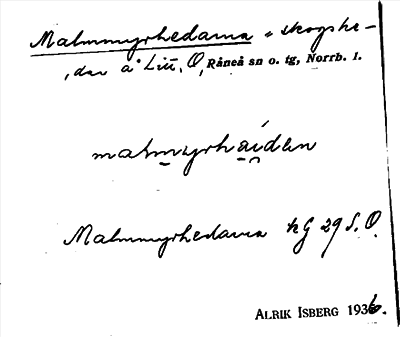 Malmmyrhedarna, skogshe-
dar å Lill. O, Råneå sn o. tg, Norrb. l.
malmyrhaidan
Malmmyrhedarna kG 29 S. O.
ALRIK ISBERG 1936.